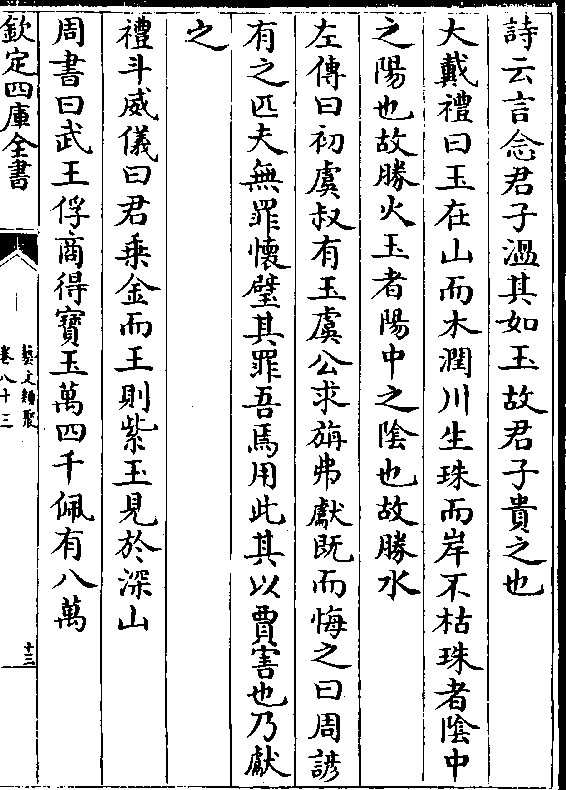 詩云言念君子溫其如玉故君子貴之也
大戴禮曰玉在山而木潤川生珠而岸不枯珠者陰中
之陽也故勝火玉者陽中之陰也故勝水
左傳曰初虞叔有玉虞公求旃弗獻既而悔之曰周諺
有之匹夫無罪懷璧其罪吾焉用此其以賈害也乃獻
之
禮斗威儀曰君乘金而王則紫玉見於深山
周書曰武王俘商得寶玉萬四千佩有八萬
欽定四庫全書
藝文類聚
卷八十三
十三